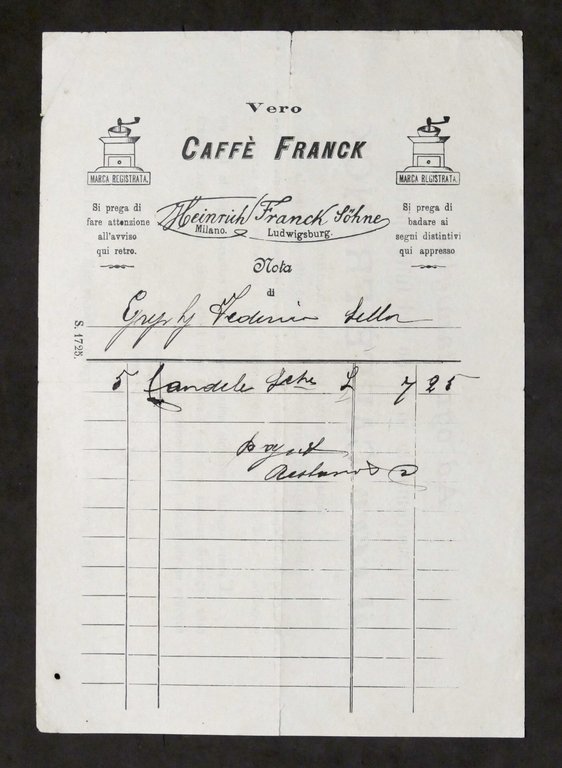 Vero
CAFFÈ FRANCK
MARCA REGISTRATA.
MARCA REGISTRATA.
Si prega di
fare attenzione
all'avviso
qui retro.
Heinrich Franck Söhne
Milano. Ludwigsburg.
Si prega di
badare ai
segni distintivi
qui appresso
Nota
di
Federico Sella
S. 1725.
5 Candele L 7 25